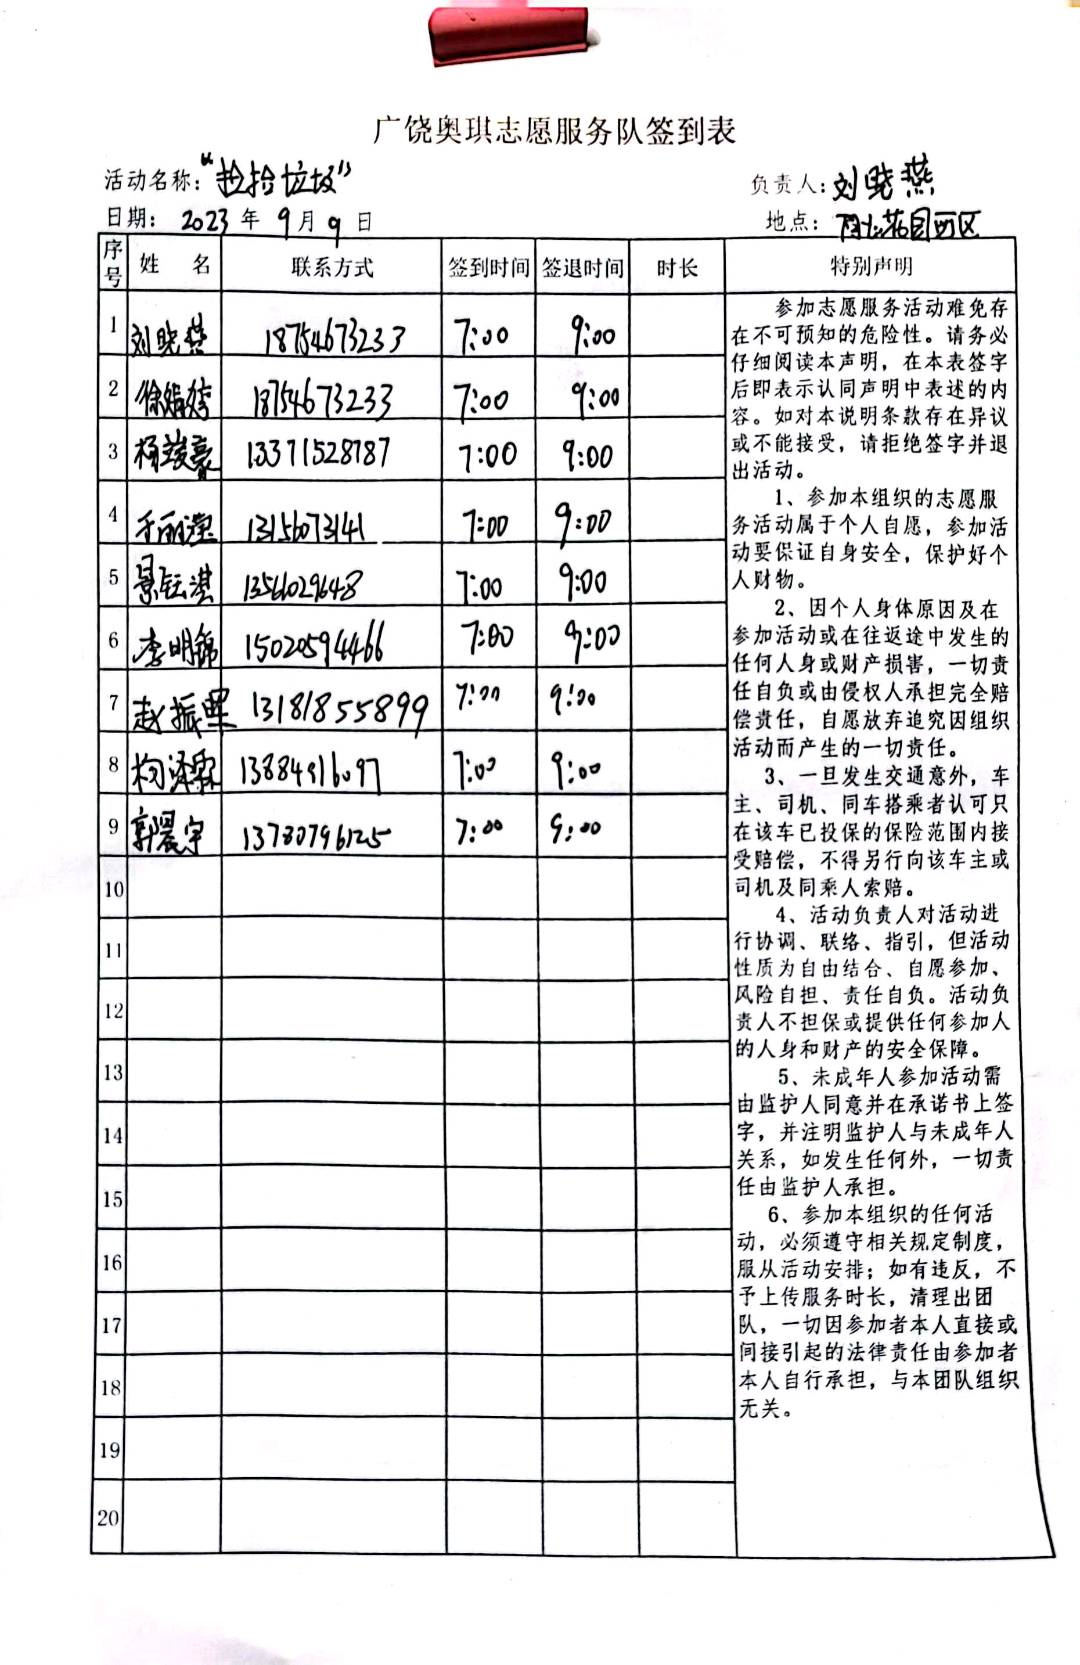 广饶奥琪志愿服务队签到表
活动名称：“捡拾垃圾” 负责人：刘晓燕
日期： 2023 年 9 月 9 日 地点： 花园西区
序号 姓 名 联系方式 签到时间 签退时间 时长 特别声明
1 刘晓燕 18754673233 7:00 9:00
2 徐娟婷 18754673233 7:00 9:00
3 杨竣豪 13371528787 7:00 9:00
4 于丽滢 13156073141 7:00 9:00
5 景钰淇 7:00 9:00
6 李明锦 15020594466 7:00 9:00
7 赵振 13181855899 7:00 9:00
8 泽霖 7:00 9:00
9 郭晨宇 13780796125 7:00 9:00
10
11
12
13
14
15
16
17
18
19
20
参加志愿服务活动难免存
在不可预知的危险性。请务必
仔细阅读本声明，在本表签字
后即表示认同声明中表述的内
容。如对本说明条款存在异议
或不能接受，请拒绝签字并退
出活动。
1、参加本组织的志愿服
务活动属于个人自愿，参加活
动要保证自身安全，保护好个
人财物。
2、因个人身体原因及在
参加活动或在往返途中发生的
任何人身或财产损害，一切责
任自负或由侵权人承担完全赔
偿责任，自愿放弃追究因组织
活动而产生的一切责任。
3、一旦发生交通意外，车
主、司机、同车搭乘者认可只
在该车已投保的保险范围内接
受赔偿，不得另行向该车主或
司机及同乘人索赔。
4、活动负责人对活动进
行协调、联络、指引，但活动
性质为自由结合、自愿参加、
风险自担、责任自负。活动负
责人不担保或提供任何参加人
的人身和财产的安全保障。
5、未成年人参加活动需
由监护人同意并在承诺书上签
字，并注明监护人与未成年人
关系，如发生任何外，一切责
任由监护人承担。
6、参加本组织的任何活
动，必须遵守相关规定制度，
服从活动安排；如有违反，不
予上传服务时长，清理出团
队，一切因参加者本人直接或
间接引起的法律责任由参加者
本人自行承担，与本团队组织
无关。